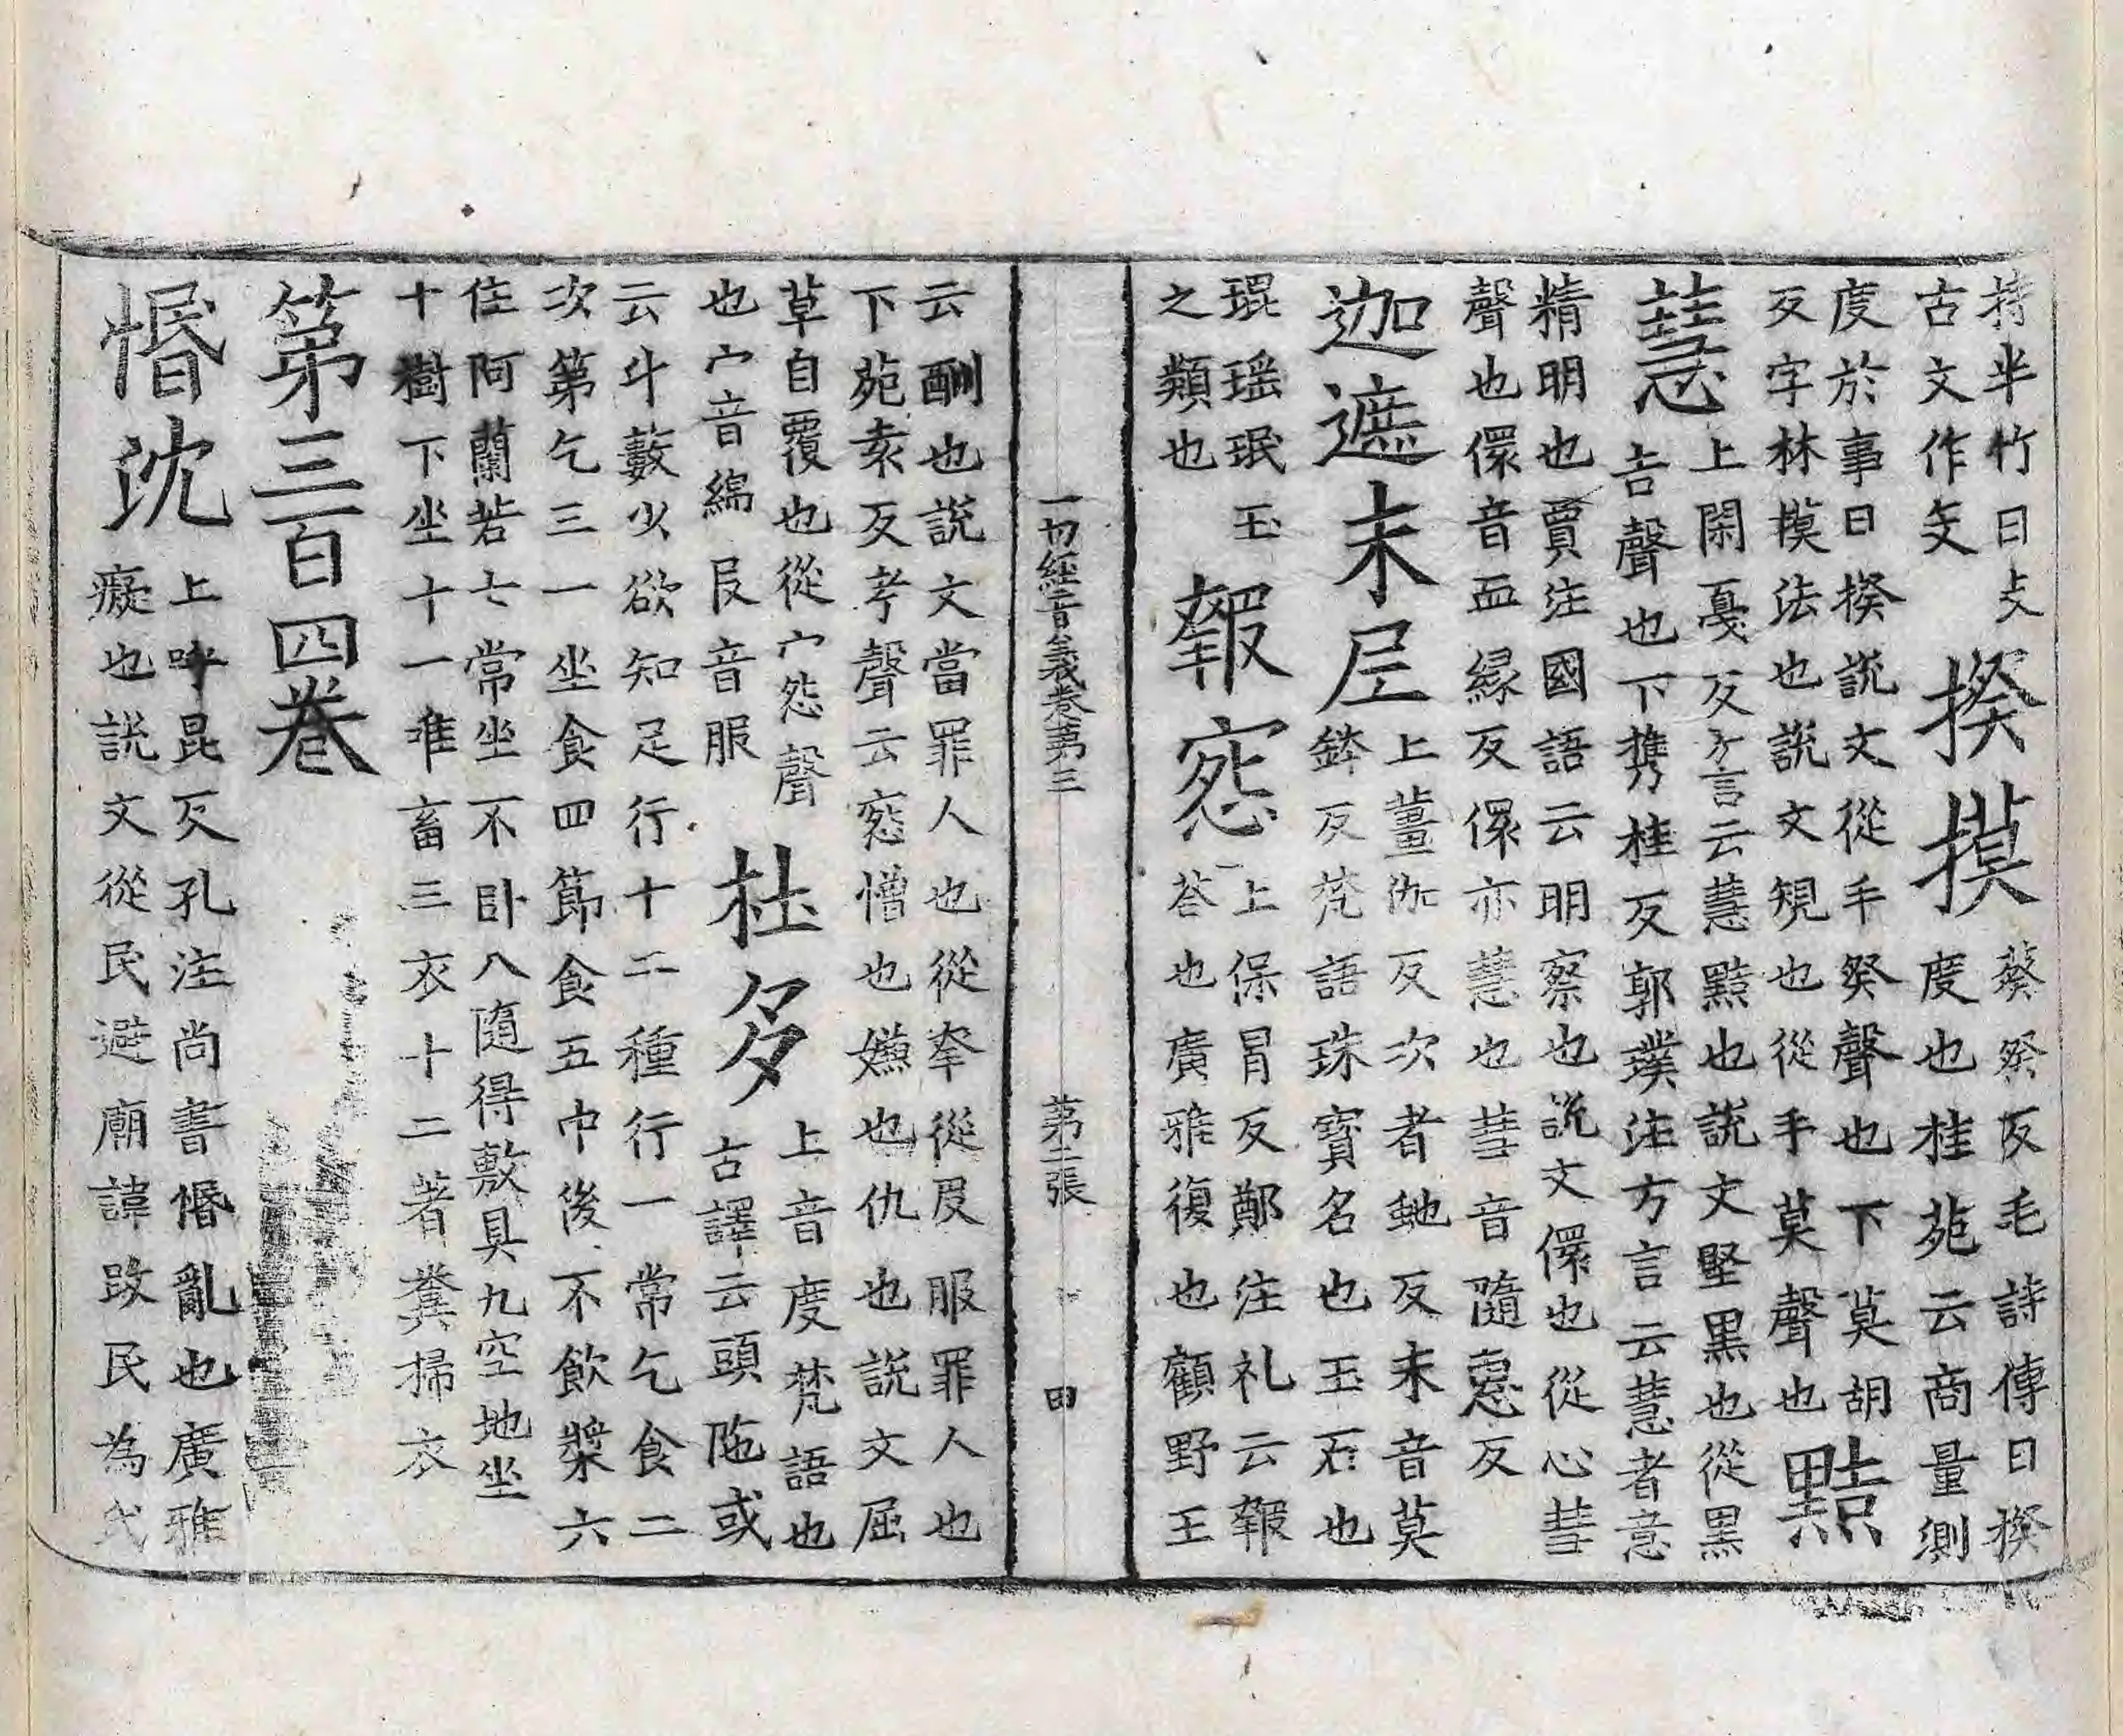 持半竹曰攴
古文作㪅
揆摸
葵癸反毛詩傳曰揆
度也桂苑云商量測
度於事曰揆說文從手癸聲也下莫胡
反字林摸法也說文規也從手莫聲也
黠
慧
上閑戛反方言云慧黠也說文堅黑也從黑
吉聲也下攜桂反郭璞注方言云慧者意
精明也賈注國語云明察也說文儇也從心彗
聲也儇音血緣反儇亦慧也彗音隨恵反
迦遮末尼
上薑伽反次者虵反末音莫
鉢反梵語珠寶名也玉石也
琨瑶珉玉
之類也
報𢙇
上保冒反鄭注礼云報
荅也廣雅復也顧野王
一切經音義卷第三 第二張 田
云酬也說文當罪人也從㚔從𠬝服罪人也
下苑袁反考聲云𢙇憎也嫌也仇也說文屈
草自覆也從宀怨聲
也宀音綿𠬝音服
杜多
上音度梵語也
古譯云頭陁或
云斗藪少欲知足行十二種行一常乞食二
次第乞三一坐食四節食五中後不飲漿六
住阿蘭若七常坐不卧八隨得敷具九空地坐
十樹下坐十一唯畜三衣十二著糞掃衣
第三百四卷
惛沈
上呼昆反孔注尚書惛亂也廣雅
癡也說文從民避廟諱改民為氏